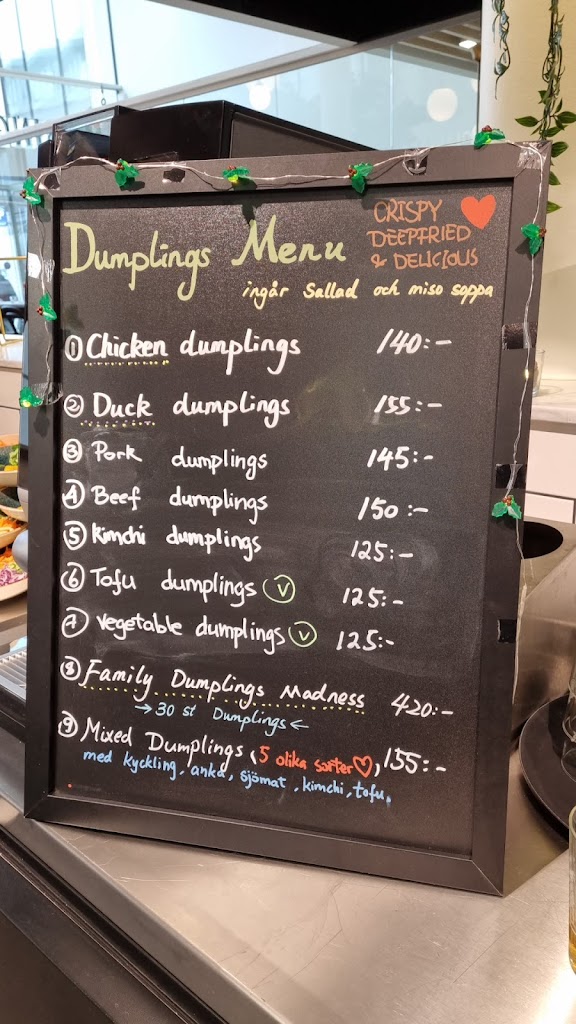 Dumplings Menu
CRISPY
DEEPFRIED
& DELICIOUS
ingår Sallad och miso soppa
① Chicken dumplings 140:-
② Duck dumplings 155:-
③ Pork dumplings 145:-
④ Beef dumplings 150:-
⑤ kimchi dumplings 125:-
⑥ Tofu dumplings Ⓥ 125:-
⑦ vegetable dumplings Ⓥ 125:-
⑧ Family Dumplings Madness 420:-
→ 30 st Dumplings ←
⑨ Mixed Dumplings (5 olika sorter♡) 155:-
med kyckling, anka, sjömat, kimchi, tofu.